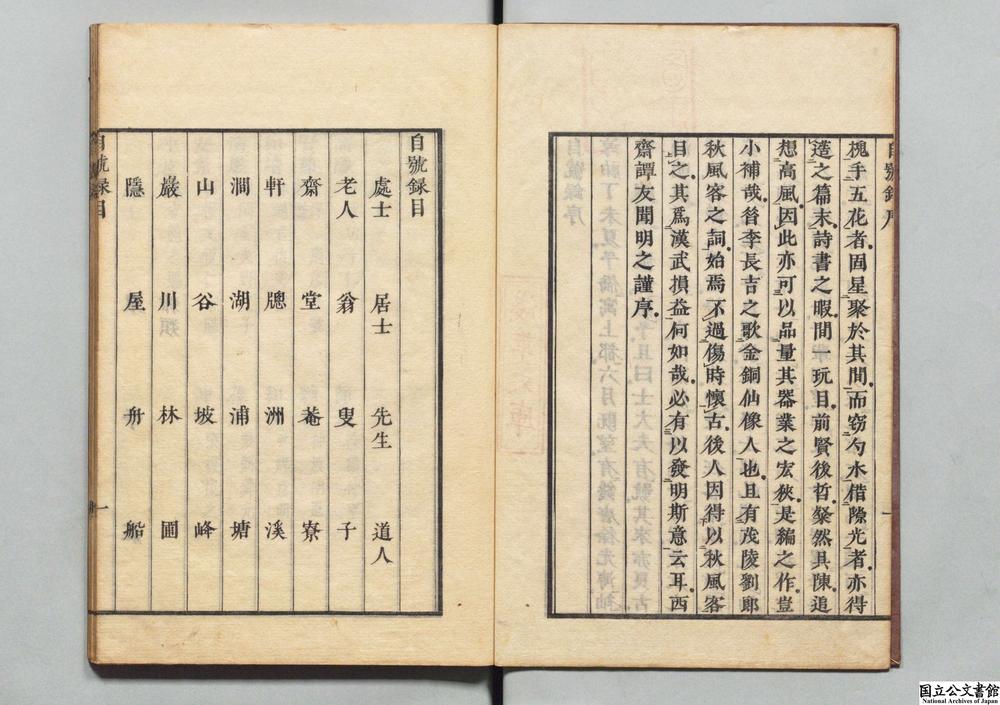 自號録序
槐手五花者固星聚於其間而窃勺水借隙光者亦得
蓮之篇末詩書之暇間一玩目前賢後哲粲然具陳追
想高風因此亦可以品量其器業之宏狹是編之作豈
小補哉昔李長吉之歌金銅仙像人也且有茂陵劉郎
秋風客之詞始焉不過傷時懷古後人因得以秋風客
目之其爲漢武損益何如哉必有以發明斯意云耳西
齋譚友聞明之謹序
一
自號録目
處士 居士 先生 道人
老人 翁 叟 子
齋 堂 菴 寮
軒 牕 洲 溪
澗 湖 浦 塘
山 谷 坡 峰
巖 川 林 圃
隱 屋 舟 船
自號録目
一
国立公文書館
National Archives of Japan